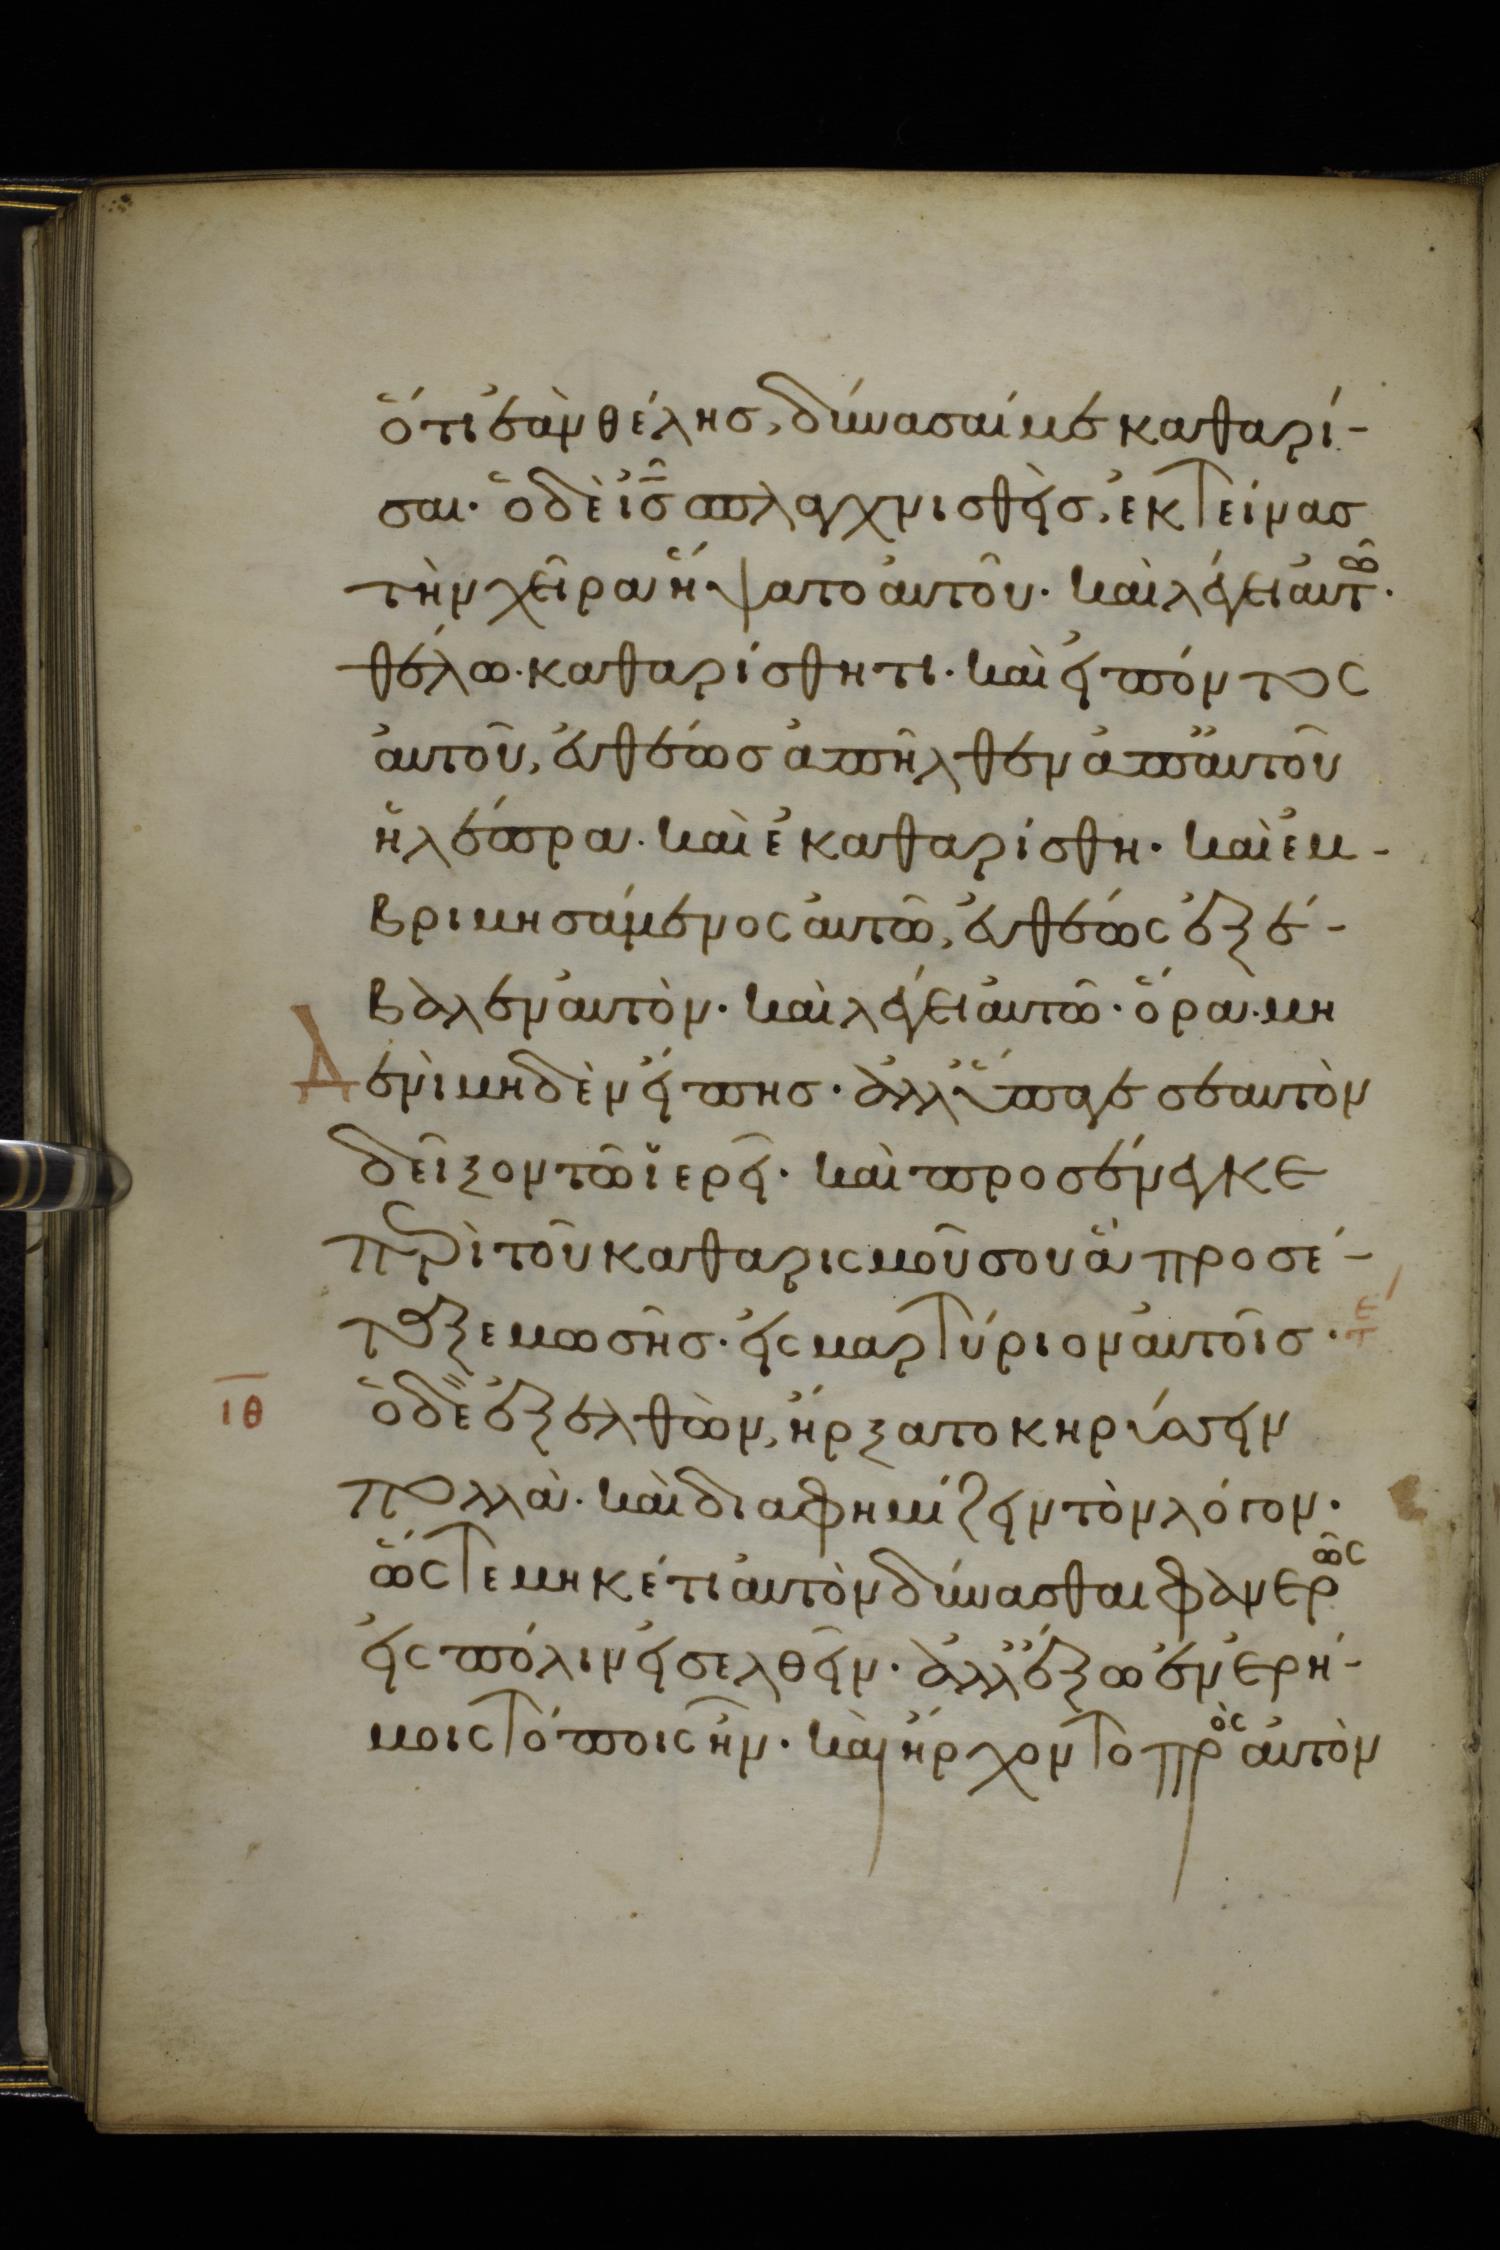 ὅτι ἐὰν θέλησ, δύνασαί με καθαρί-
σαι. ὁ δὲ ἰ̅σ̅ σπλαγχνισθεὶσ, ἐκτείνασ
τὴν χεῖρα ἥψατο αὐτοῦ. καὶ λέγει αὐτῶ.
θέλω. καθαρίσθητι. καὶ εἰπόντος
αὐτοῦ, ἐυθέωσ ἀπῆλθεν ἀπ' ἀυτοῦ
ἡ λέπρα. καὶ ἐκαθαρίσθη. καὶ ἐμ-
βριμησάμενος ἀυτῶ, ἐυθέως ἐξέ-
βαλεν ἀυτὸν. καὶ λέγει ἀυτῶ. ὅρα. μη
δενὶ μηδὲν εἴπησ. ἀλλ' ὕπαγε σεαυτὸν
δεῖξον τῶ ἱερεῖ. καὶ προσένεγκε
περὶ τοῦ καθαρισμοῦ σου ἃ προσέ-
ταξε μωσῆσ. εἰς μαρτύριον ἀυτοῖσ. ε´ τ
ιθ ὁ δὲ ἐξελθὼν, ἤρξατο κηρύσσειν
πολλὰ. καὶ διαφημίζειν τὸν λόγον.
ὥστε μηκέτι ἀυτὸν δύνασθαι φανερῶς
εἰς πόλιν εἰσελθεῖν. ἀλλ' ἔξω ἐν ἐρή-
μοις τόποις ἦν. καὶ ἤρχοντο πρὸς ἀυτὸν